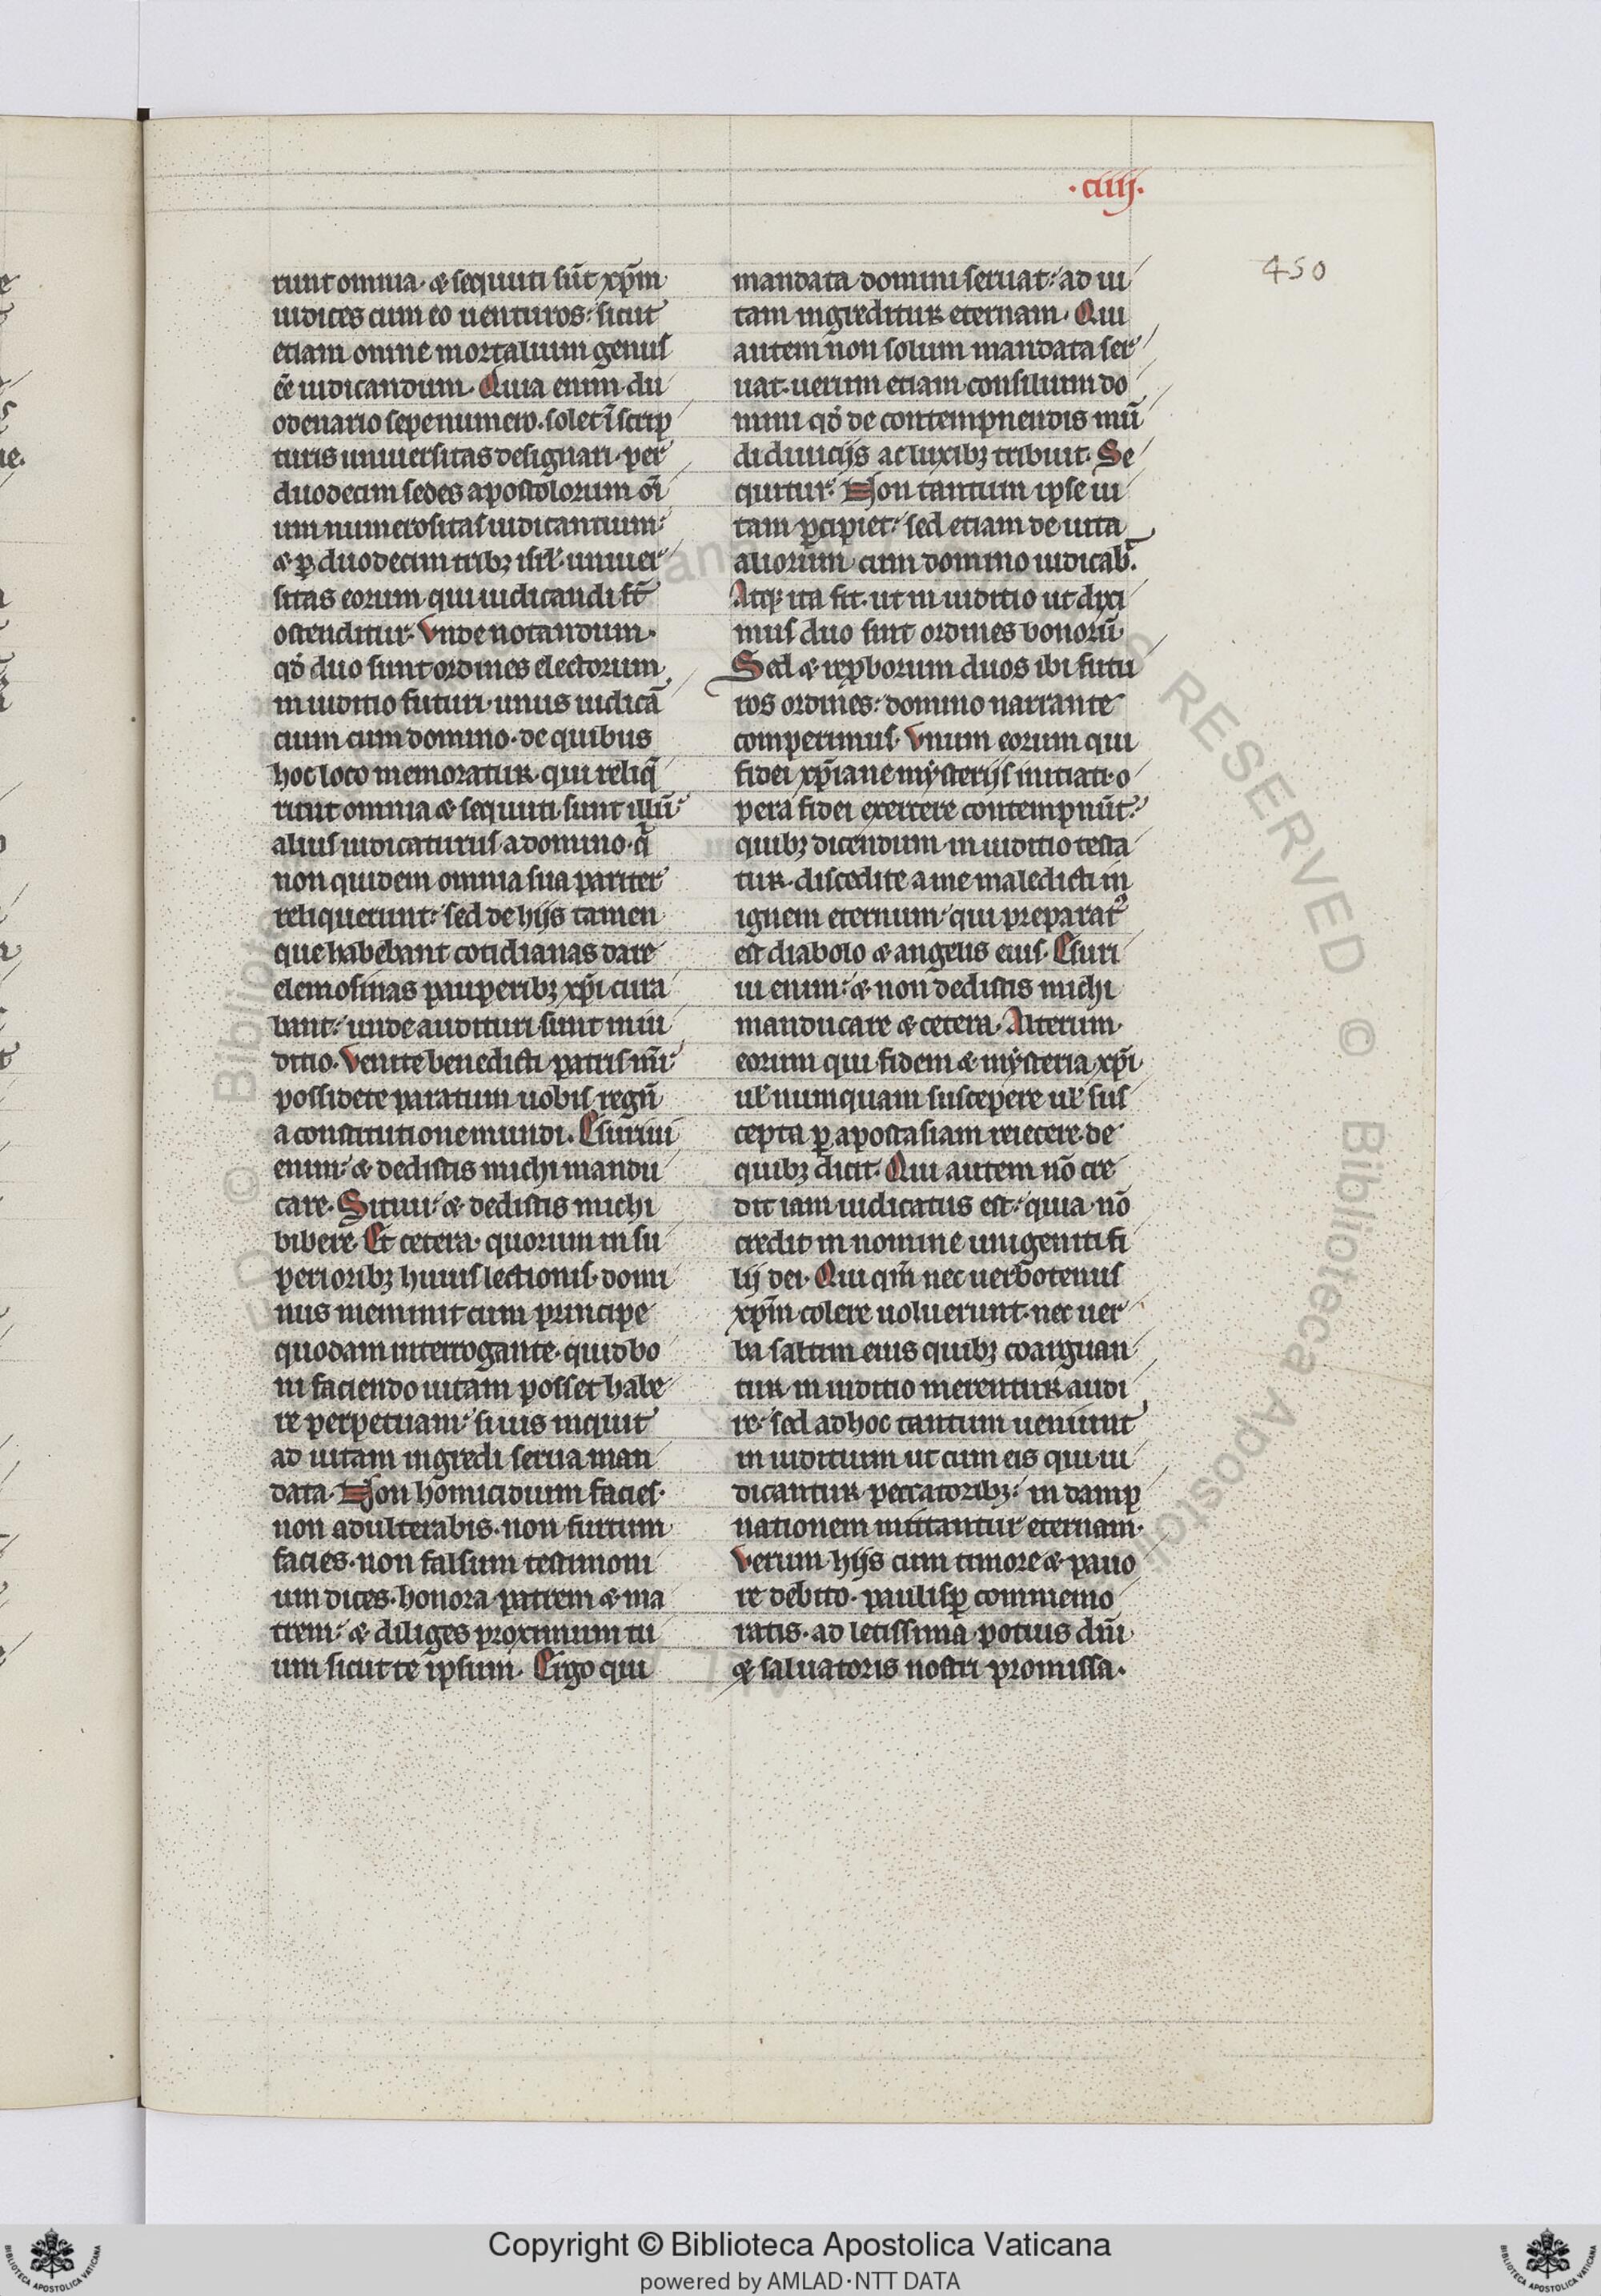 ·ciiij·
450
runt omnia· & sequuti sūt xp̄m
iudices cum eo uenturos: sicut
etiam omne mortalium genus
eē iudicandum· Quia enim du
odenario sepe numero· solet ī scrip
turis uniuersitas designari· per
duodecim sedes apostolorum oī
um numerositas iudicantium:
& ꝑ duodecim tribꝫ isrl̄· uniuer
sitas eorum qui iudicandi st̄
ostenditur· Vnde notandum·
qđ duo sunt ordines electorum
in iuditio futuri· unus iudicā
tium cum domino· de quibus
hoc loco memoratur· qui reliq̄
runt omnia & sequuti sunt illū:
alius iudicaturus· a domino· q̄
non quidem omnia sua pariter
reliquerunt: sed de hijs tamen
que habebant cotidianas dare
elemosinas pauperibꝫ xp̄i cura
bant: unde audituri sunt in iu
ditio· Venite benedicti patris mī·
possidete paratum uobis regnū
a constitutione mundi· Esuriui
enim: & dedistis michi mandu
care· Sitiui: & dedistis michi
bibere· Et cetera· quorum in su
perioribꝫ huius lectionis· domi
nus meminit cum principe
quodam interrogante· quid bo
ni faciendo uitam posset habe
re perpetuam: si uis inquit
ad uitam ingredi serua man
data· Non homicidium facies·
non adulterabis· non furtum
facies· non falsum testimoni
um dices· honora patrem & ma
trem: & diliges proximum tu
um sicut te ipsum· Ergo qui
mandata domini seruat: ad ui
tam ingreditur eternam· Qui
autem non solum mandata ser
uat· uerum etiam consilium do
mini qđ de contempnendis mū
di diuicijs ac luxibꝫ tribuit· Se
quitur· Non tantum ipse ui
tam ꝑcipiet: sed etiam de uita
aliorum cum domino iudicab̄·
Atqꝫ ita fit· ut in iuditio ut dixi
mus duo sint ordines bonorū·
Sed & reꝓborum duos ibi futu
ros ordines: domino narrante
comperimus· Vnum eorum qui
fidei xp̄iane mẏsterijs initiati· o
pera fidei exercere contempnūt:
quibꝫ dicendum in iuditio testa
tur· discedite a me maledicti in
ignem eternum: qui preparatꝰ
est diabolo & angelis eius· Esuri
ui enim: & non dedistis michi
manducare & cetera· Alterum·
eorum qui fidem & mẏsteria xp̄i
ul̄ numquam suscepere ul̄ sus
cepta ꝑ apostasiam reiecere· de
quibꝫ dicit· Qui autem nō cre
dit iam iudicatus est: quia nō
credit in nomine unigeniti fi
lij dei· Qui qm̄ nec uerbotenus
xp̄m colere uoluerunt· nec uer
ba saltim eius quibꝫ coarguan
tur in iuditio merentur audi
re: sed ad hoc tantum ueniunt
in iuditium ut cum eis qui iu
dicantur peccatoribꝫ: in damp
nationem mittantur eternam·
Verum hijs cum timore & pauo
re debito· paulisꝑ commemo
ratis· ad letissima potius dn̄i
& saluatoris nostri promissa·
Copyright © Biblioteca Apostolica Vaticana
powered by AMLAD·NTT DATA